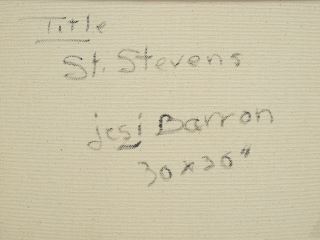 Title
St. Stevens
jesi Barron
30x30"